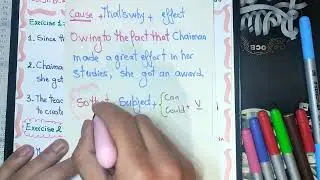 Cause + That's why + effect
Exercise 1:
Owing to the fact that Chaiman
1. Since th
made a great effort in her
2. Chaima
studies, she got an award
she got
3. The teac
So that Subject + { Can
Could + V
to cons
Exercise 2